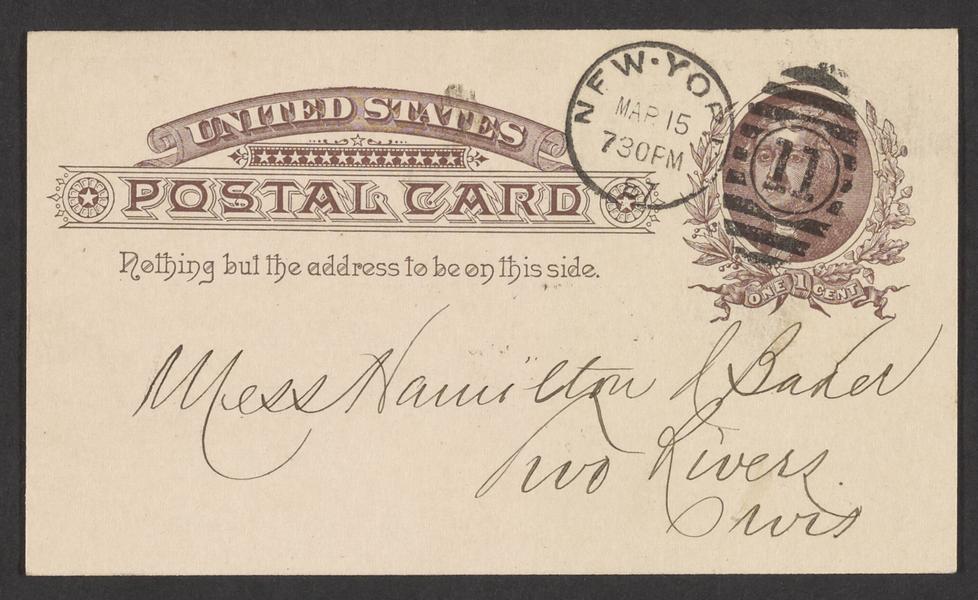 UNITED STATES
POSTAL CARD
Nothing but the address to be on this side.
NEW·YORK
MAR 15
730PM
87
11
ONE 1 CENT
Mess Hamilton & Baker
Two Rivers
Wis